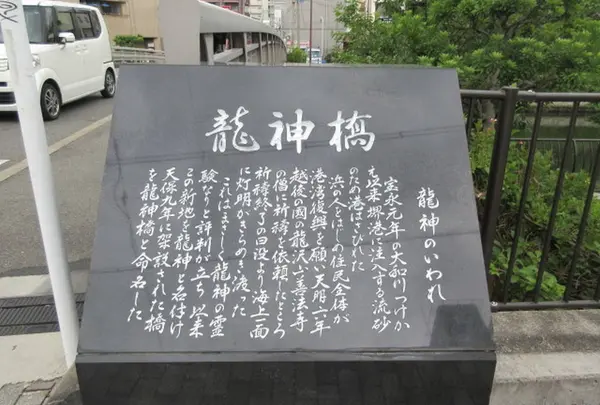 龍神橋
龍神のいわれ
宝永元年の大和川つけか
え以来堺港に注入する流砂
のため港はさびれた
浜の人をはじめ住民全体が
港湾復興を願い天明六年
越後の國の龍沢山善法寺
の僧に祈祷を依頼したところ
祈祷終了の四没より海上一面
に灯明がきらめき渡った
これはまさしく龍神の霊
験なりと評判が立ち 以来
この新地を龍神と名付け
天保九年に架設された橋
を龍神橋と命名した